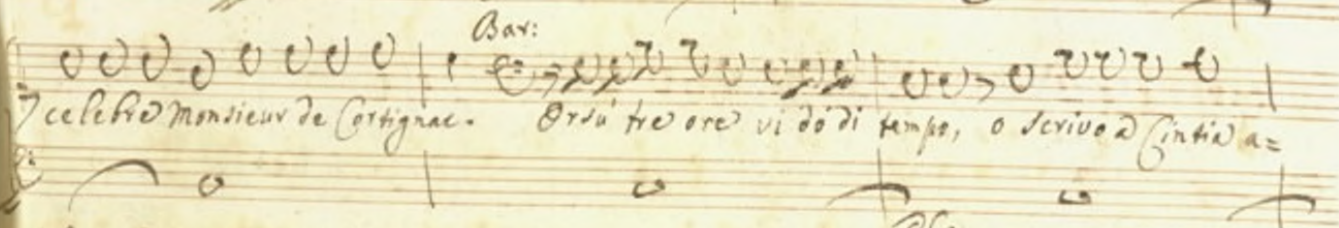 Bar:
celebre Monsieur de Cortignac. Orsù tre ore vi dò di tempo, o scrivo a Cintia a=